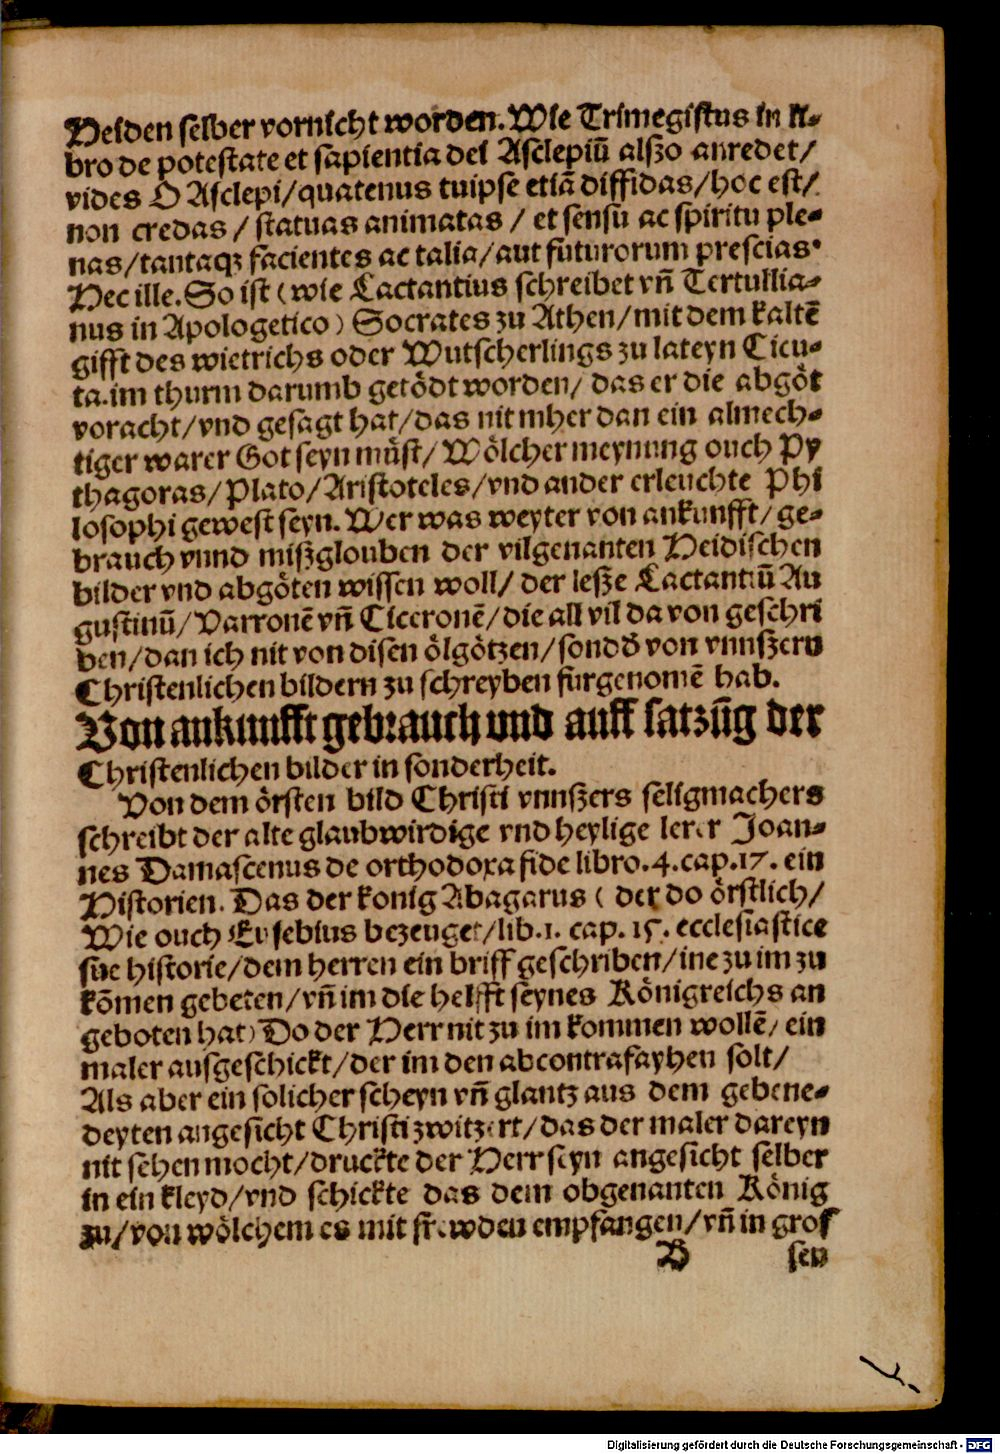 Heiden selber vornicht worden. Wie Trimegistus in li⸗
bro de potestate et sapientia dei Asclepiū alszo anredet/
vides O Asclepi/quatenus tuipse etiā diffidas/hoc est/
non credas / statuas animatas / et sensu ac spiritu ple⸗
nas/tantaqʒ facientes ac talia/aut futurorum prescias.
Hec ille. So ist (wie Lactantius schreibet vn̄ Tertullia⸗
nus in Apologetico) Socrates zu Athen/mit dem kaltē
gifft des wietrichs oder Wutscherlings zu lateyn Cicu⸗
ta.im thurm darumb getödt worden/ das er die abgöt
voracht/vnd gesagt hat/das nit mher dan ein almech⸗
tiger warer Got seyn müst/ Wölcher meynung ouch Py
thagoras/Plato/Aristoteles/vnd ander erleuchte Phi
losophi gewest seyn. Wer was weyter von ankunfft/ge⸗
brauch vnnd miszglouben der vilgenanten Heidischen
bilder vnd abgöten wissen woll/ der lesze Lactantiū Au
gustinū/Varronē vn̄ Ciceronē/die all vil da von geschri
ben/dan ich nit von disen ölgötzen/sondð von vnnszern
Christenlichen bildern zu schreyben furgenomē hab.
Von ankunfft gebrauch vnd auff satzūg der
Christenlichen bilder in sonderheit.
Von dem örsten bild Christi vnnszers seligmachers
schreibt der alte glaubwirdige vnd heylige lerer Joan⸗
nes Damascenus de orthodoxa fide libro.4.cap.17. ein
Historien. Das der konig Abagarus ( der do örstlich/
Wie ouch Eusebius bezeuget/lib.1. cap. 15. ecclesiastice
sue historie/dem herren ein briff geschriben/ine zu im zu
kōmen gebeten/vn̄ im die helfft seynes Königreichs an
geboten hat) Do der Herr nit zu im kommen wollē/ ein
maler ausgeschickt/der im den abcontrafayhen solt/
Als aber ein solicher scheyn vn̄ glantz aus dem gebene⸗
deyten angesicht Christi zwitzert/das der maler dareyn
nit sehen mocht/druckte der Herr seyn angesicht selber
in ein kleyd/vnd schickte das dem obgenanten König
zu/von wölchem es mit frewden empfangen/vn̄ in gros
B sen
Digitalisierung gefördert durch die Deutsche Forschungsgemeinschaft - DFG